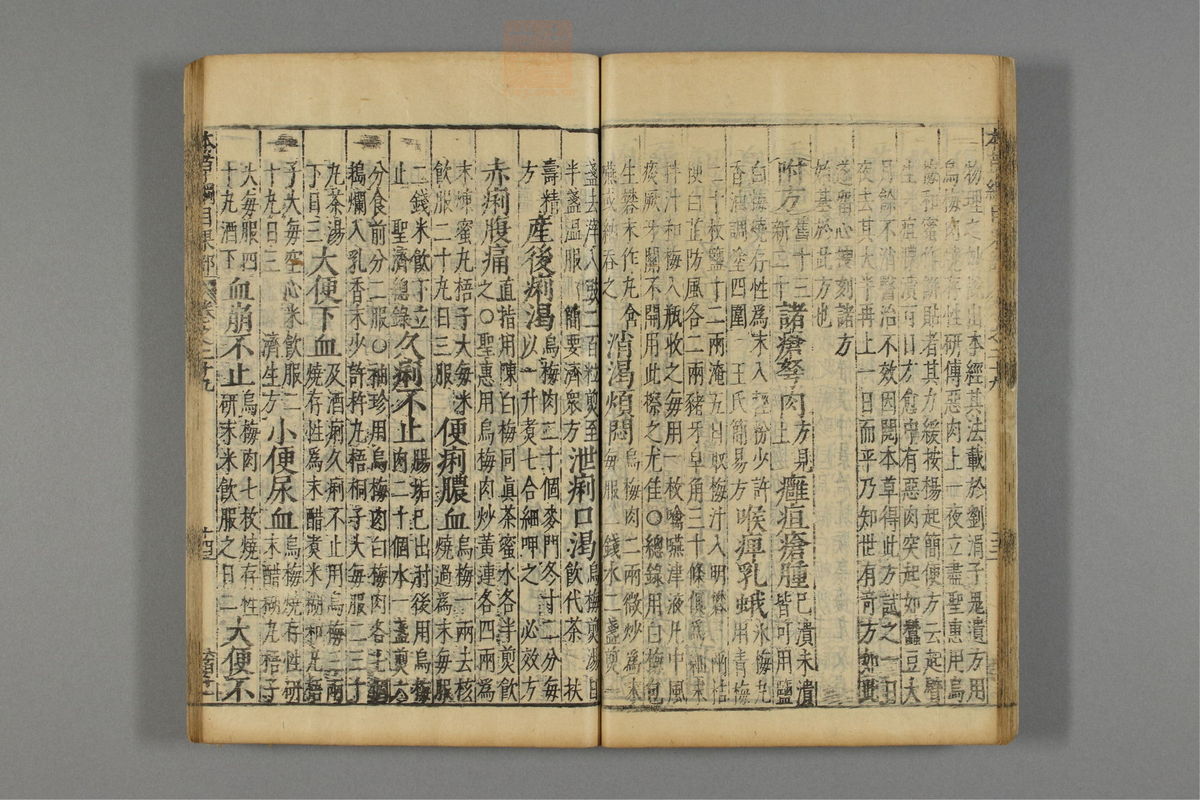 物理之妙出本經其法載於劉涓子鬼遺方用
烏梅肉燒存性研傅惡肉上一夜立盡聖惠用烏
梅和蜜作餅貼者其力緩按楊起簡便方云起臂
生一疽膿潰百日方愈中有惡肉突起如蠶豆大
月餘不消醫治不效因閱本草得此方試之一日
夜去其大半再上一日而平乃知世有奇方如此
遂留心搜刻諸方
始基於此方也
附方舊十三新二十 諸瘡弩肉方見上 癰疽瘡腫已潰未潰皆可用鹽
白梅燒存性爲末入輕粉少許
香油調塗四圍 王氏簡易方 喉痺乳蛾氷梅丸用青梅
二十枚鹽十二兩淹五日取梅汁入明礬三兩桔
梗白芷防風各二兩豬牙皁角三十條俱爲細末
拌汁和梅入瓶收之每用一枚噙嚥津液凡中風
痰厥牙關不開用此擦之尤佳〇總錄用白梅包
生礬末作丸含
嚥或納吞之 消渴煩悶烏梅肉二兩微炒爲末每服二錢水二盞煎一
盞去滓入豉二百粒煎至
半盞溫服 簡要濟衆方 泄痢口渴烏梅煎湯日飲代茶 扶
壽精方 產後痢渴烏梅肉二十個麥門冬十二分每以一升煮七合細呷之 必效方
赤痢腹痛直指用陳白梅同眞茶蜜水各半煎飲之〇聖惠用烏梅肉炒黃連各四兩爲
末煉蜜丸梧子大每米
飲服二十丸日三服 便痢膿血烏梅一兩去核燒過爲末每服
二錢米飲下立
止 聖濟總錄 久痢不止腸垢已出肘後用烏梅肉二十個水一盞煎六
分食前分二服〇袖珍用烏梅肉白梅肉各七個
搗爛入乳香末少許杵丸梧桐子大每服二三十
丸茶湯下日三 大便下血及酒痢久痢不止用烏梅三兩燒存性爲末醋煮米糊和丸梧
子大每空心米飲服二
十丸日三 濟生方 小便尿血烏梅燒存性研末醋糊丸梧子
大每服四
十丸酒下 血崩不止烏梅肉七枚燒存性研末米飲服之日二 大便不